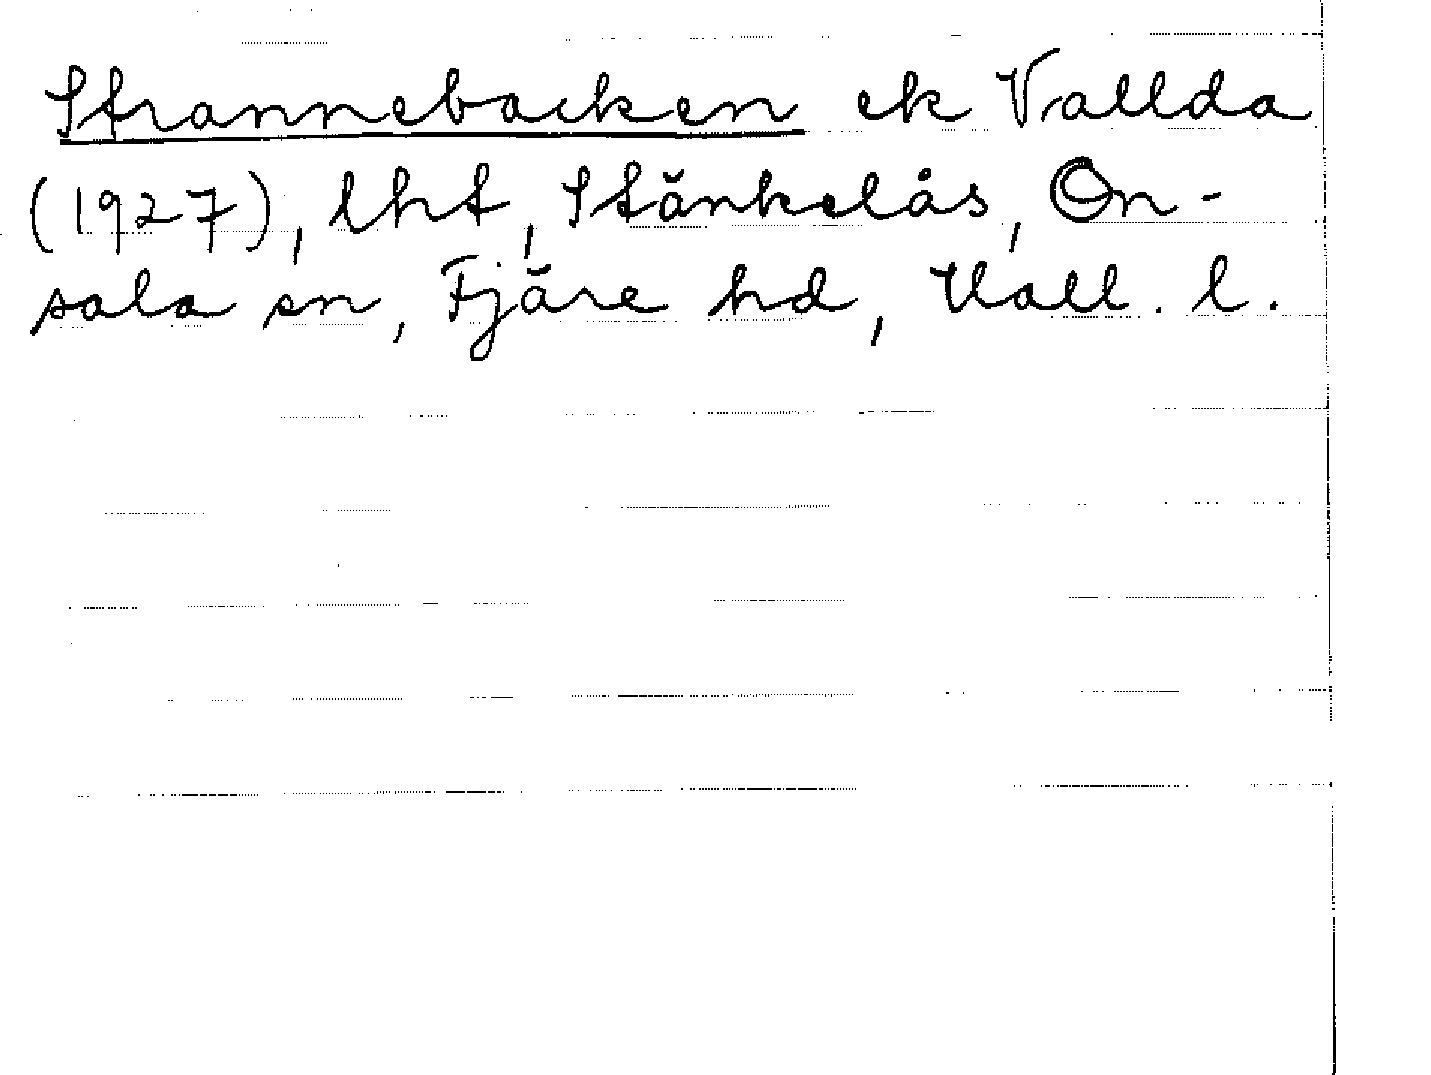 Strannebacken ek Vallda
(1927), lht, Stänkelås, On-
sala sn, Fjäre hd, Hall. l.